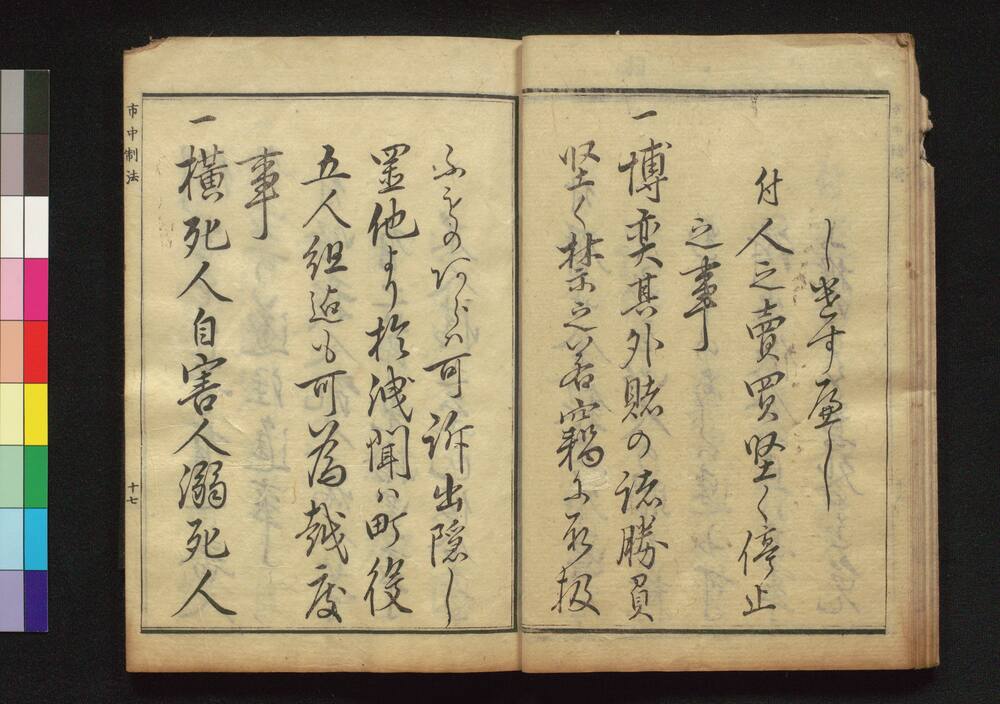 し遣す屓し
付人之賣買堅く停止
之事
一博奕其外賭の諸勝負
堅く禁之若密ニ取扱
ふものあらハ可訴出隠し
置他より於洩聞ハ町役
五人組迄も可為越度
事
一横死人自害人溺死人
市中制法
十七